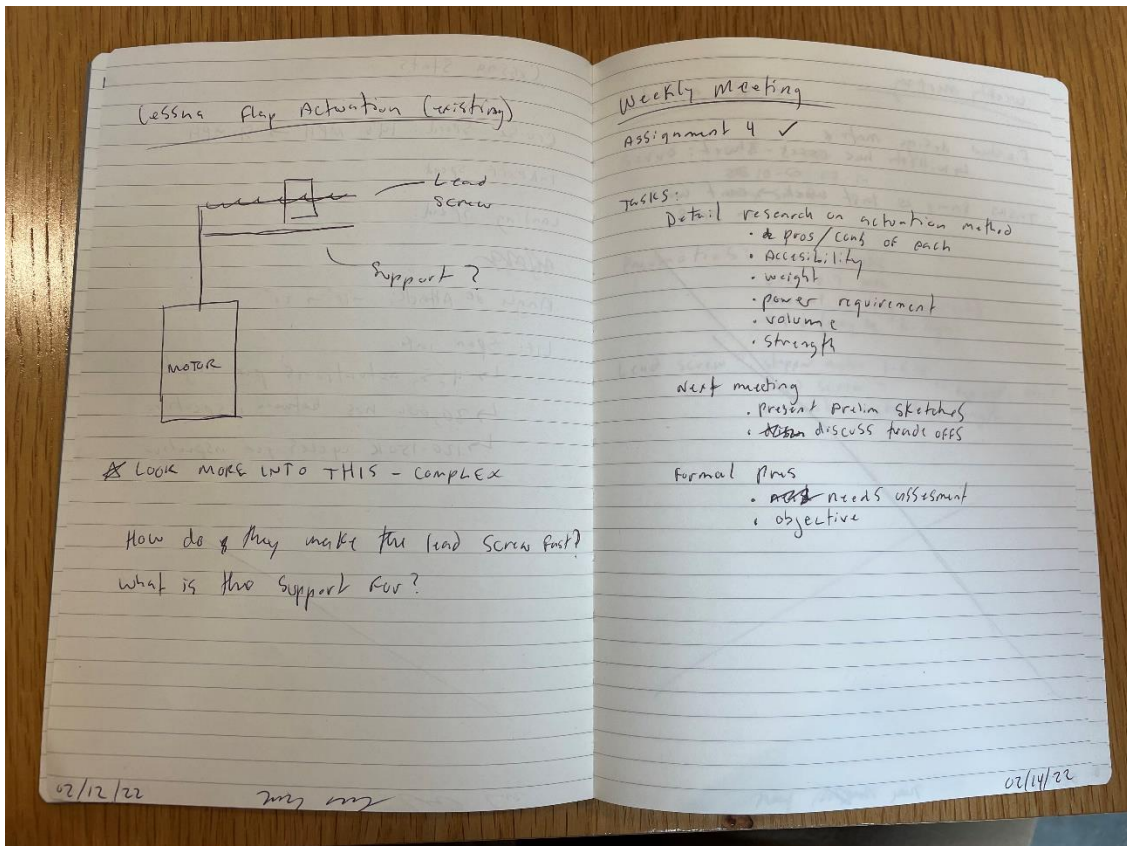 Cessna Flap Actuation (existing)
Lead
Screw
Support?
MOTOR
LOOK MORE INTO THIS - COMPLEX
How do they make the lead screw fast?
What is the support for?
02/12/22
Weekly Meeting
Assignment 4 ✓
Tasks:
Detail research on actuation method
· pros/cons of each
· Accesibility
· weight
· power requirement
· volume
· strength
Next meeting
· present prelim sketches
· discuss trade offs
Formal Pres
· needs assesment
· objective
02/14/22